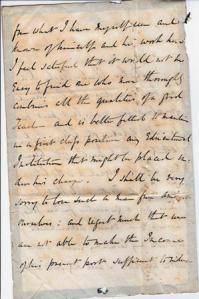 from what I have myself seen and
know of himself and his work here
I feel satisfied that it would not be
easy to find one who more thoroughly
combines all the qualities of a good
Teacher and is better fitted to maintain
in a first class position any Educational
Institution that might be placed in
his charge. I shall be very
sorry to lose such a man from amongst
ourselves: and regret much that we
are not able to make the Income
of his present post sufficient to